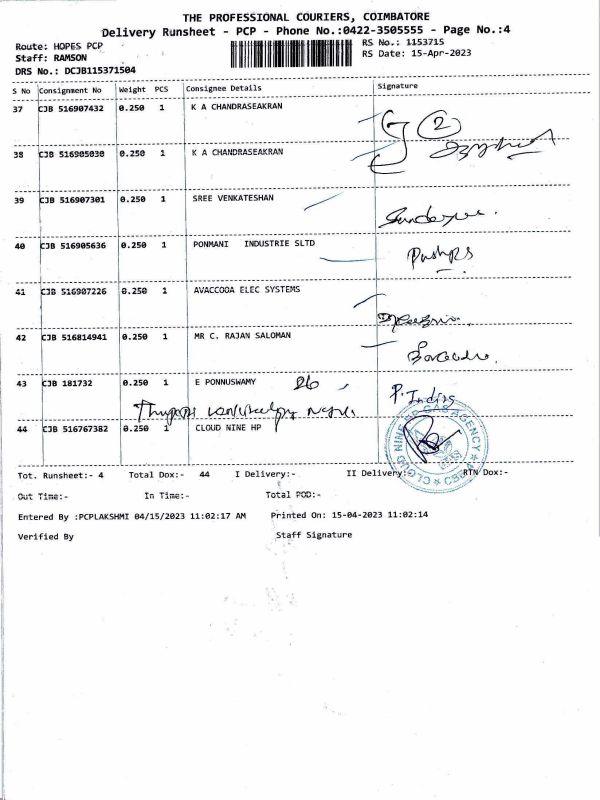 THE PROFESSIONAL COURIERS, COIMBATORE
Delivery Runsheet - PCP - Phone No.:0422-3505555 - Page No.:4
Route: HOPES PCP
RS No.: 1153715
Staff: RAMSON
RS Date: 15-Apr-2023
DRS No.: DCJB115371504
S No Consignment No Weight PCS Consignee Details Signature
37 CJB 516907432 0.250 1 K A CHANDRASEAKRAN
2
38 CJB 516905030 0.250 1 K A CHANDRASEAKRAN
39 CJB 516907301 0.250 1 SREE VENKATESHAN
40 CJB 516905636 0.250 1 PONMANI INDUSTRIE SLTD
Pushpa
41 CJB 516907226 0.250 1 AVACCOOA ELEC SYSTEMS
42 CJB 516814941 0.250 1 MR C. RAJAN SALOMAN
43 CJB 181732 0.250 1 E PONNUSWAMY
P. Indira
44 CJB 516767382 0.250 1 CLOUD NINE HP
CLOUD NINE HP GAS AGENCY
Tot. Runsheet:- 4 Total Dox:- 44 I Delivery:- II Delivery: RTN Dox:-
Out Time:- In Time:- Total POD:-
Entered By :PCPLAKSHMI 04/15/2023 11:02:17 AM Printed On: 15-04-2023 11:02:14
Verified By Staff Signature